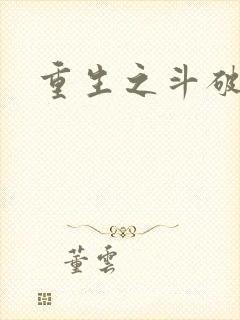 重生之斗破
董雲